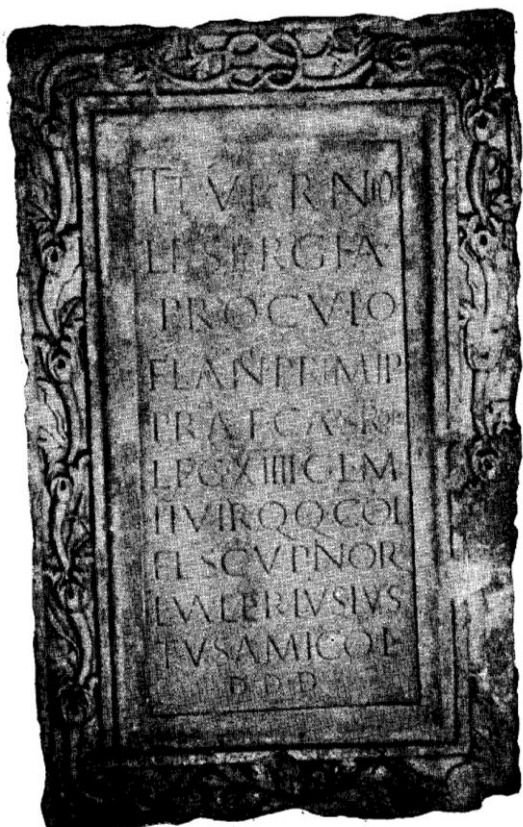 L F SERGIA
PROCVLO
FLAN PRIMIP
PRAEF
LEG XIIII GEM
IIVIR QQ COL
FL SCVPINOR
L VALERIVS IVS
TVS AMICO L
D D D